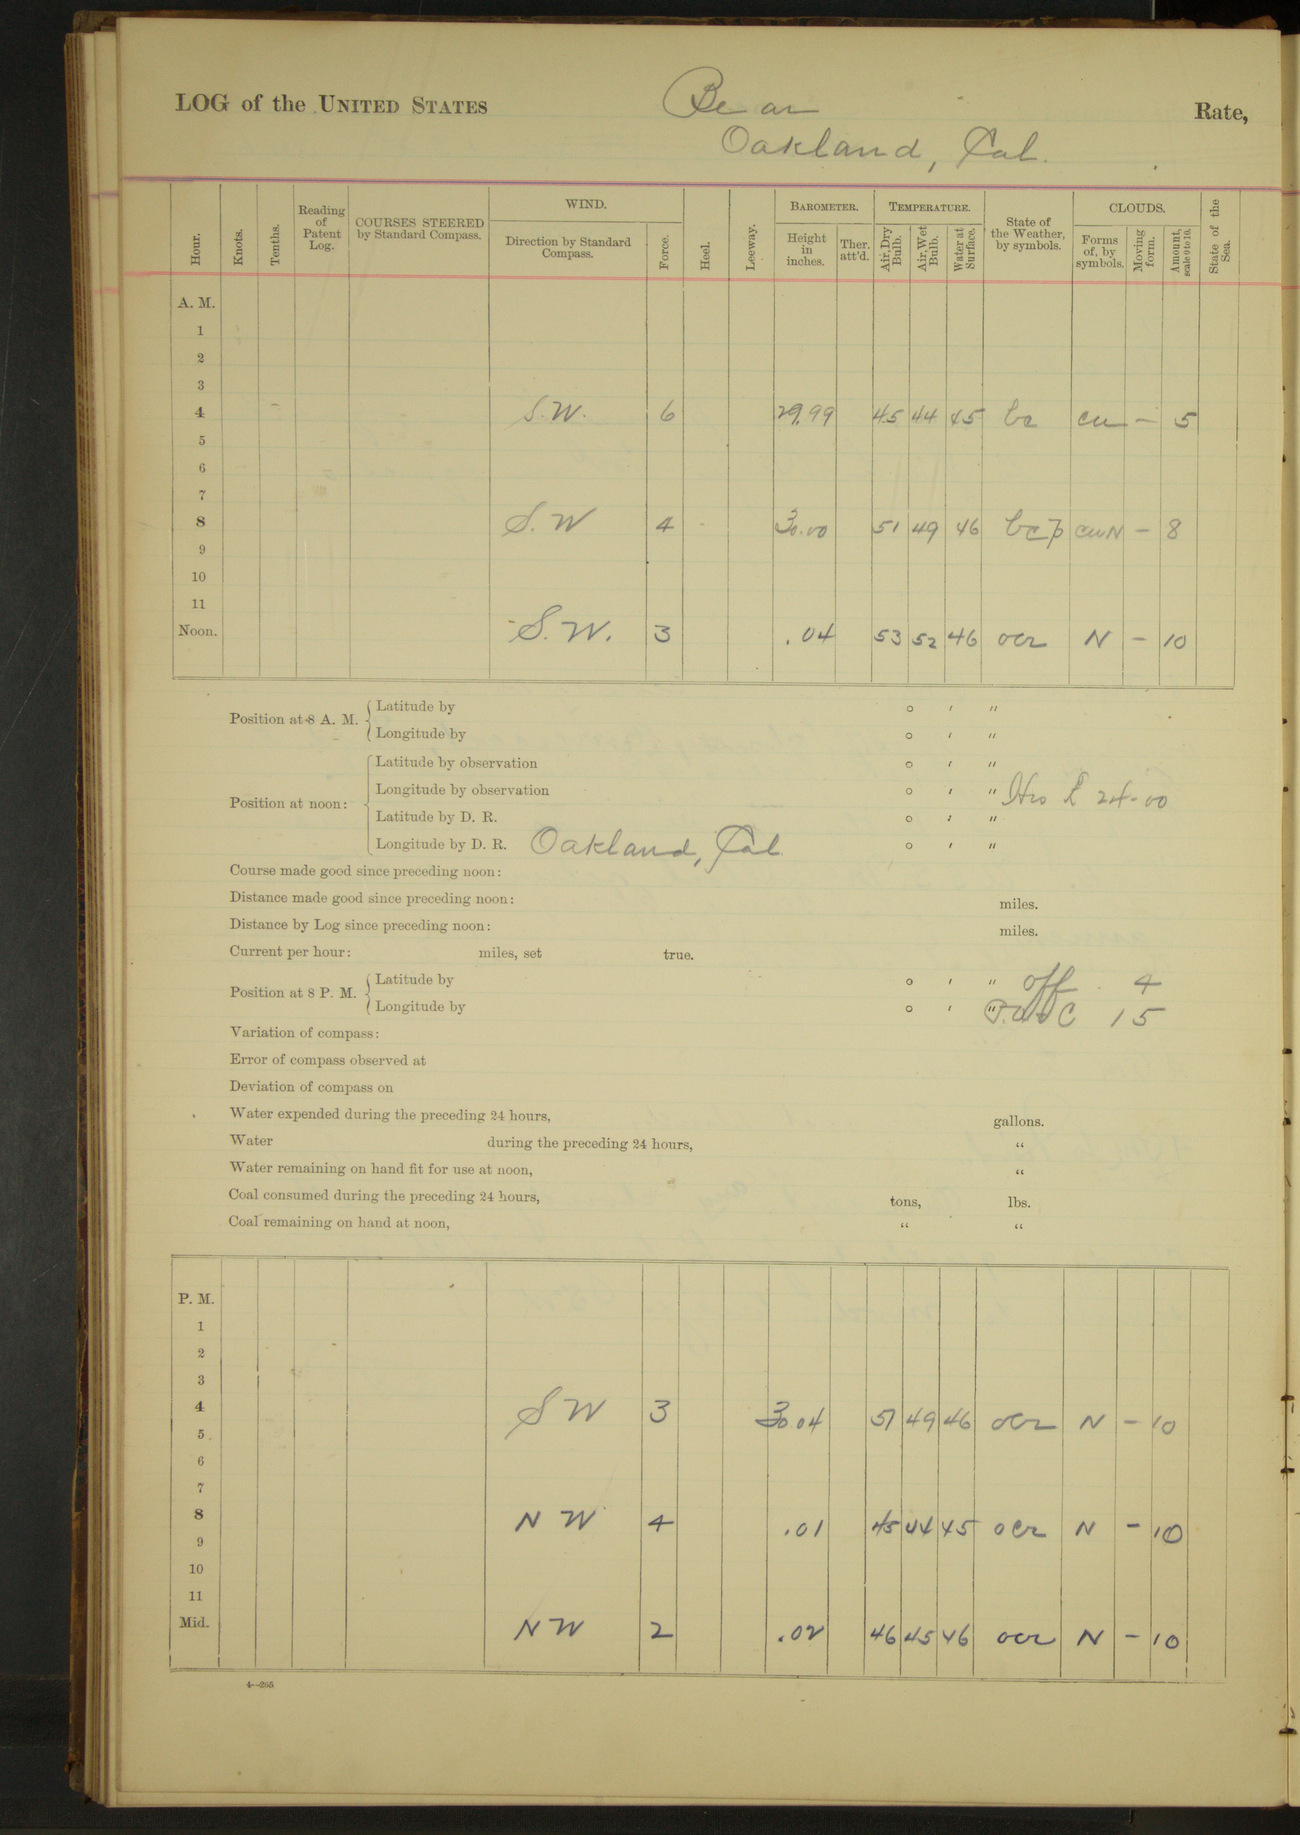 LOG of the UNITED STATES Bear Rate,
Oakland, Cal.
Hour. Knots. Tenths. Reading of Patent Log. COURSES STEERED by Standard Compass. WIND. Direction by Standard Compass. Force. Heel. Leeway. BAROMETER. Height in inches. Ther. att'd. TEMPERATURE. Air, Dry Bulb. Air, Wet Bulb. Water at Surface. State of the Weather, by symbols. CLOUDS. Forms of, by symbols. Moving form. Amount, scale 0 to 10. State of the Sea.
A. M.
1
2
3
4 S.W. 6 29.99 45 44 45 bc cu — 5
5
6
7
8 S.W 4 30.00 51 49 46 bcp cuN — 8
9
10
11
Noon. S.W. 3 .04 53 52 46 ocr N — 10
Position at 8 A. M. Latitude by ° ′ ″
Longitude by ° ′ ″
Position at noon: Latitude by observation ° ′ ″
Longitude by observation ° ′ ″ 24-00
Latitude by D. R. ° ′ ″
Longitude by D. R. Oakland, Cal ° ′ ″
Course made good since preceding noon:
Distance made good since preceding noon: miles.
Distance by Log since preceding noon: miles.
Current per hour: miles, set true.
Position at 8 P. M. Latitude by ° ′ ″ off 4
Longitude by ° ′ ″ 15
Variation of compass:
Error of compass observed at
Deviation of compass on
Water expended during the preceding 24 hours, gallons.
Water during the preceding 24 hours, “
Water remaining on hand fit for use at noon, “
Coal consumed during the preceding 24 hours, tons, lbs.
Coal remaining on hand at noon, “ “
P. M.
1
2
3
4 S W 3 30.04 51 49 46 ocr N — 10
5
6
7
8 N W 4 .01 45 44 45 ocr N — 10
9
10
11
Mid. N W 2 .02 46 45 46 ocr N — 10
4—265